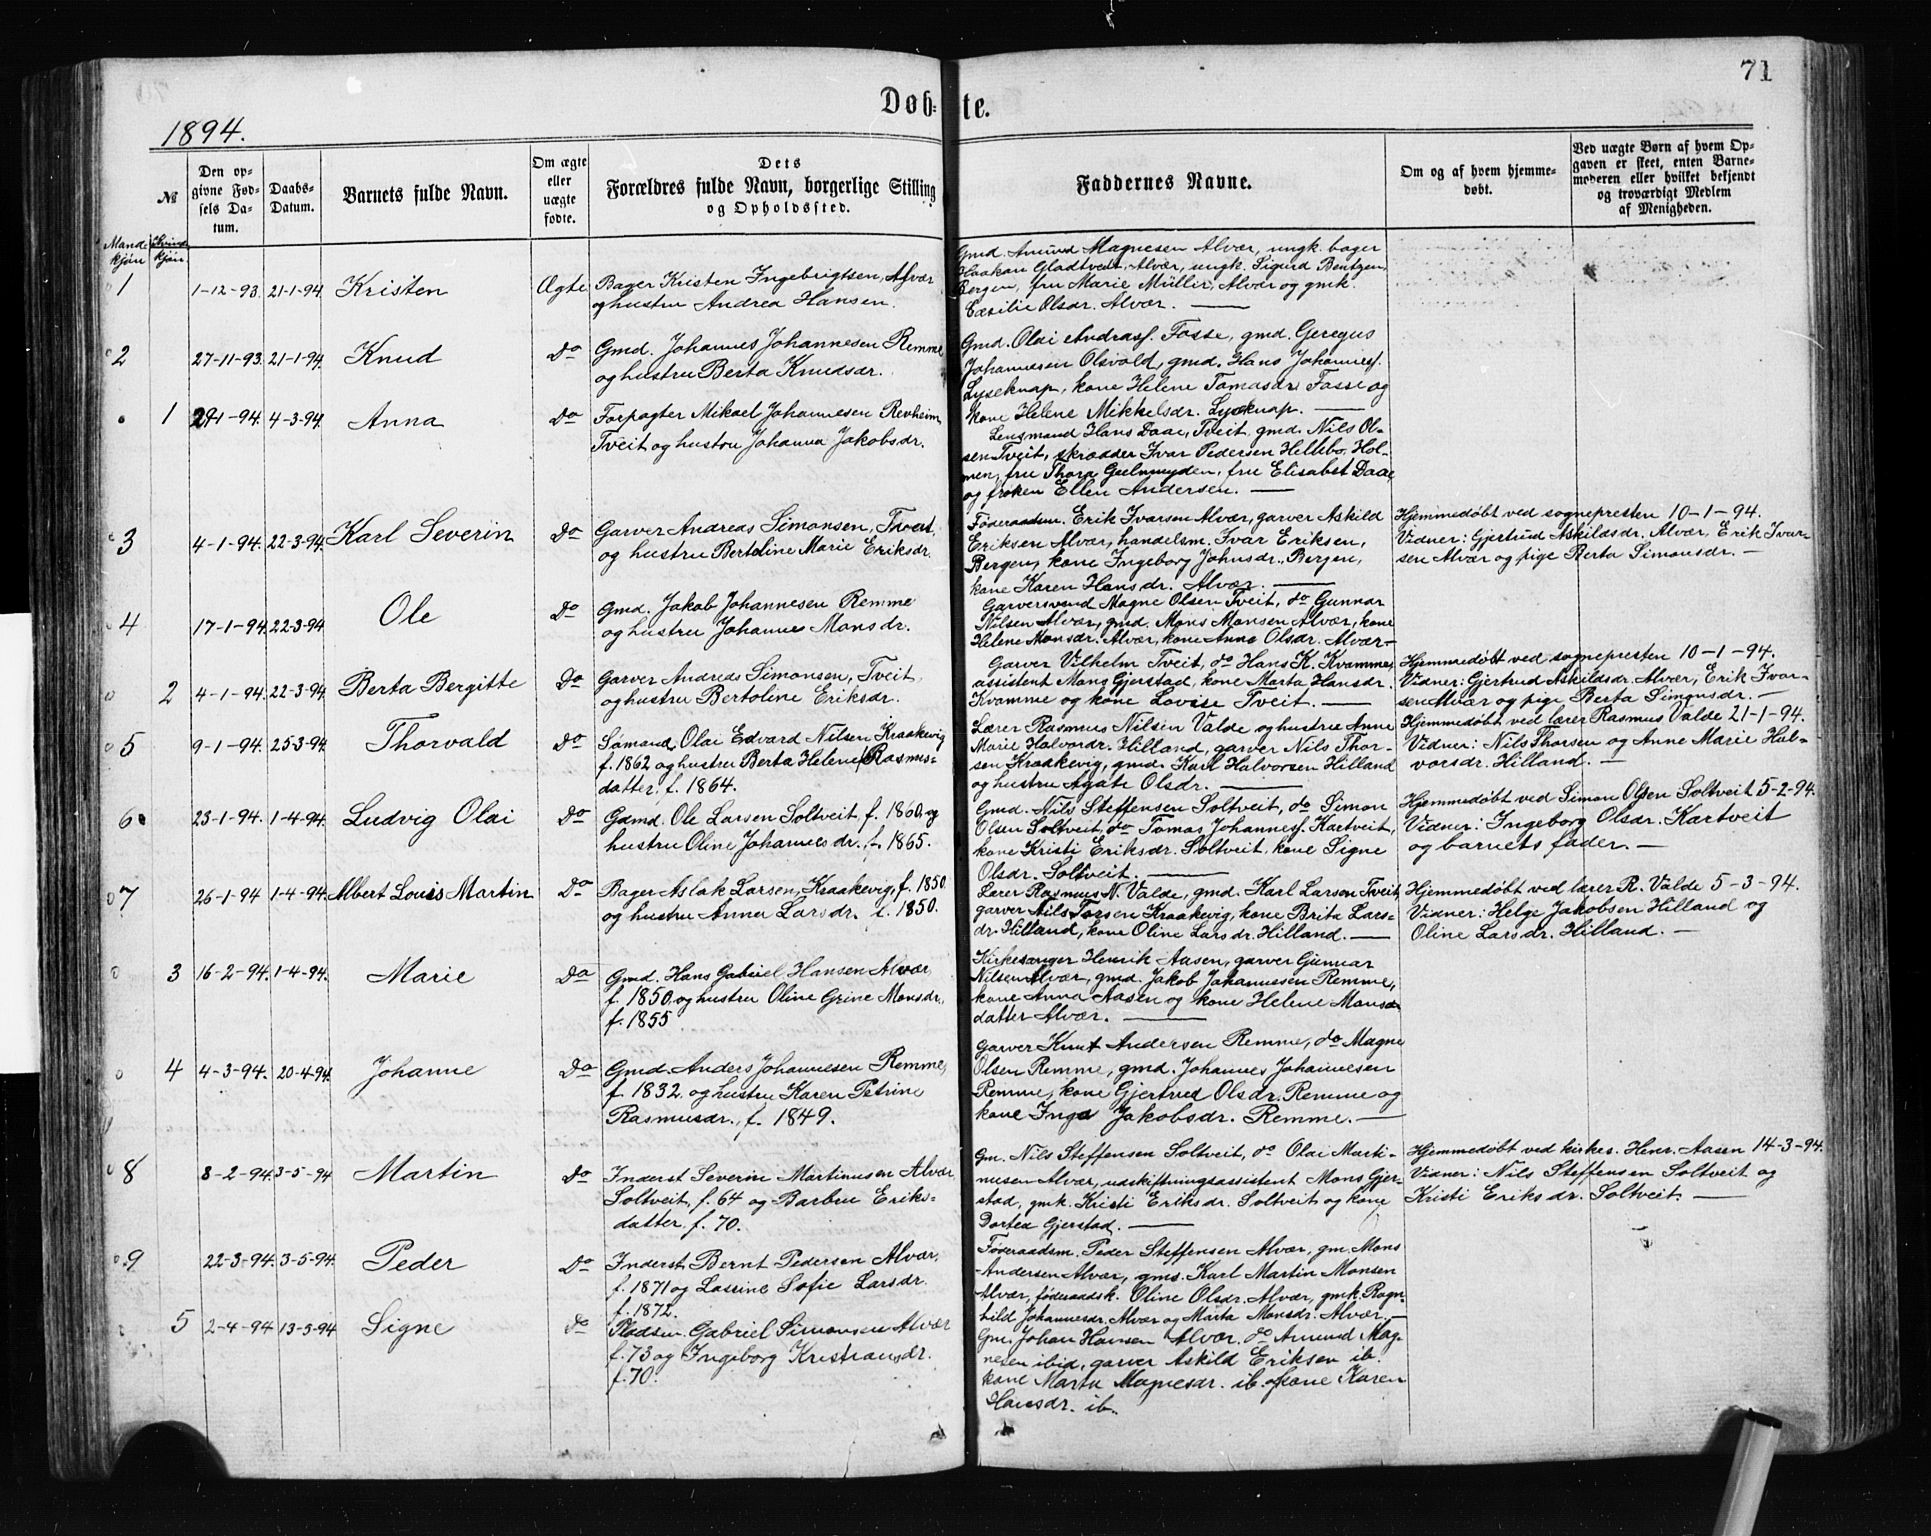 71
Døb=te.
1894.
№
Den op-
givne Fød-
sels Da-
tum.
Daabs-
Datum.
Barnets fulde Navn.
Om ægte
eller
uægte
fødte.
Dets
Forældres fulde Navn, borgerlige Stilling
og Opholdssted.
Faddernes Navne.
Om og af hvem hjemme-
døbt.
Ved uægte Børn af hvem Op-
gaven er skeet, enten Barne-
moderen eller hvilket bekjendt
og troværdigt Medlem
af Menigheden.
Mand-
kjøn
Kvinde
kjøn
1 1-12-93. 21-1-94. Kristen Ægte
Bager Kristen Ingebrigtsen, Alvær
og hustru Andrea Hansen.
Gmd. Amund Magnesen Alvær, ungk. bager
Haakon Gladtvedt, Alvær, ungk. Sigurd Bentzen,
Bergen, fru Marie Müller, Alvær og gmk.
Cæsilie Olsdr. Alvær. —
2 27-11-93. 21-1-94. Knud Do
Gmd. Johannes Johannesen Remme
og hustru Berta Knudsdr.
Gmd. Olai Andrasf. Fosse, gmd. Geregus
Johannesen Olsvold, gmd. Hans Johannesf.
Lyseknap, kone Helene Tomasdr. Fosse og
kone Helene Mikkelsdr. Lyseknap. —
1 -1-94. 4-3-94. Anna Do
Forpagter Mikael Johannesen Revheim,
Tveit og hustru Johanna Jakobsdr.
Lensmand Hans Daae, Tveit, gmd. Nils Ol-
sen Tveit, skrædder Ivar Pedersen Hellebø, Hol-
men, fru Thora Geelmuyden, fru Elisabet Daae,
og frøken Ellen Andersen. —
3 4-1-94. 22-3-94. Karl Severin Do
Garver Andreas Simonsen, Tveit,
og hustru Bertoline Marie Eriksdr.
Føderaadsm. Erik Ivarsen Alvær, garver Askild
Eriksen Alvær, handelsm. Ivar Eriksen,
Bergen, kone Ingeborg Johnsdr., Bergen,
kone Karen Hansdr. Alvær. —
Hjemmedøbt ved sognepresten 10-1-94.
Vidner: Gjertrud Askildsdr. Alvær, Erik Ivar-
sen Alvær og pige Berta Simonsdr. —
4 17-1-94. 22-3-94 Ole Do
Gmd. Jakob Johannesen Remme
og hustru Johanne Monsdr.
Garversvend Magne Olsen Tveit, do Gunnar
Nilsen Alvær, gmd. Mons Monsen Alvær, kone
Helene Monsdr. Alvær, kone Anna Olsdr. Alvær—
2 4-1-94. 22-3-94. Berta Bergitte Do
Garver Andreas Simonsen, Tveit,
og hustru Bertoline Eriksdr.
Garver Vilhelm Tveit, do Hans K. Kvamme,
assistent Mons Gjerstad, kone Marta Hansdr.
Kvamme og kone Lovise Tveit. —
Hjemmedøbt ved sognepresten 10-1-94.
Vidner: Gjertrud Askildsdr. Alvær, Erik Ivar-
sen Alvær og pige Berta Simonsdr. —
5 9-1-94. 25-3-94. Thorvald Do
Sømand Olai Edvard Nilsen Kraakevig
f. 1862 og hustru Berta Helene Rasmus-
datter, f. 1864.
Lærer Rasmus Nilsen Valde og hustru Anne
Marie Halvordr. Hilland, garver Nils Thor-
sen Kraakevig, gmd. Karl Halvorsen Hilland
og hustru Agate Olsdr. —
Hjemmedøbt ved lærer Rasmus Valde 21-1-94.
Vidner: Nils Thorsen og Anne Marie Hal-
vorsdr. Hilland. —
6 23-1-94. 1-4-94. Ludvig Olai Do
Gdmd. Ole Larsen Soltveit, f. 1860, og
hustru Oline Johannesdr. f. 1865.
Gmd. Nils Steffensen Soltveit, do Simon
Olsen Soltveit, do Tomas Johannesf. Kartveit,
kone Kristi Eriksdr. Soltveit, kone Signe
Olsdr. Soltveit. —
Hjemmedøbt ved Simon Olsen Soltveit 5-2-94.
Vidner: Ingeborg Olsdr. Kartveit
og barnets fader. —
7 26-1-94 1-4-94. Albert Louis Martin Do
Bager Aslak Larsen, Kraakevig, f. 1850
og hustru Anna Larsdr. f. 1850.
Lærer Rasmus N. Valde, gmd. Karl Larsen Tveit,
garver Nils Torsen Kraakevig, kone Brita Lars-
dr. Hilland, kone Oline Larsdr. Hilland. —
Hjemmedøbt ved lærer R. Valde 5-3-94.
Vidner: Helge Jakobsen Hilland og
Oline Larsdr. Hilland. —
3 16-2-94. 1-4-94. Marie Do
Gmd. Hans Gabriel Hansen Alvær,
f. 1850, og hustru Oline Grine Monsdr.,
f. 1855
Kirkesanger Henrik Aasen, garver Gunnar
Nilsen Alvær, gmd. Jakob Johannesen Remme,
kone Anna Aasen og kone Helene Mons-
datter Alvær. —
4 4-3-94. 20-4-94. Johanne Do
Gmd. Anders Johannesen Remme,
f. 1832. og hustru Karen Petrine
Rasmusdr., f. 1849.
Garver Knut Andersen Remme, do Magne
Olsen Remme, gmd. Johannes Johannesen
Remme, kone Gjertrud Olsdr. Remme og
kone Inga Jakobsdr. Remme. —
8 8-2-94. 3-5-94 Martin Do
Inderst Severin Martinusen Alvær,
Soltveit, f. 64 og Barbru Eriks-
datter f. 70.
Gm. Nils Steffensen Soltveit, do Olai Marti-
nusen Alvær, udskiftningsassistent Mons Gjer-
stad, gmk. Kristi Eriksdr. Soltveit og kone
Dortea Gjerstad. —
Hjemmedøbt ved kirkes. Henr. Aasen 14-3-94.
Vidner: Nils Steffensen Soltveit og
Kristi Eriksdr. Soltveit. —
9 22-3-94. 3-5-94. Peder Do
Inderst Bernt Pedersen Alvær,
f. 1871 og Lassine Sofie Larsdr.
f. 1872.
Føderaadsm. Peder Steffensen Alvær, gm. Mons
Andersen Alvær, gms. Karl Martin Monsen
Alvær, føderaadsk. Oline Olsdr. Alvær, gmk. Ragn-
hild Johannesdr. Alvær og Marta Monsdr. Alvær.—
5 2-4-94 13-5-94 Signe Do
Pladsm. Gabriel Simonsen Alvær
f. 73 og Ingeborg Kristiansdr.
f. 70.
Gm. Johan Hansen Alvær, do Amund Mag-
nesen ibid, garver Askild Eriksen ib.
kone Marta Magnesdr. ib. og kone Karen
Hansdr. ib.